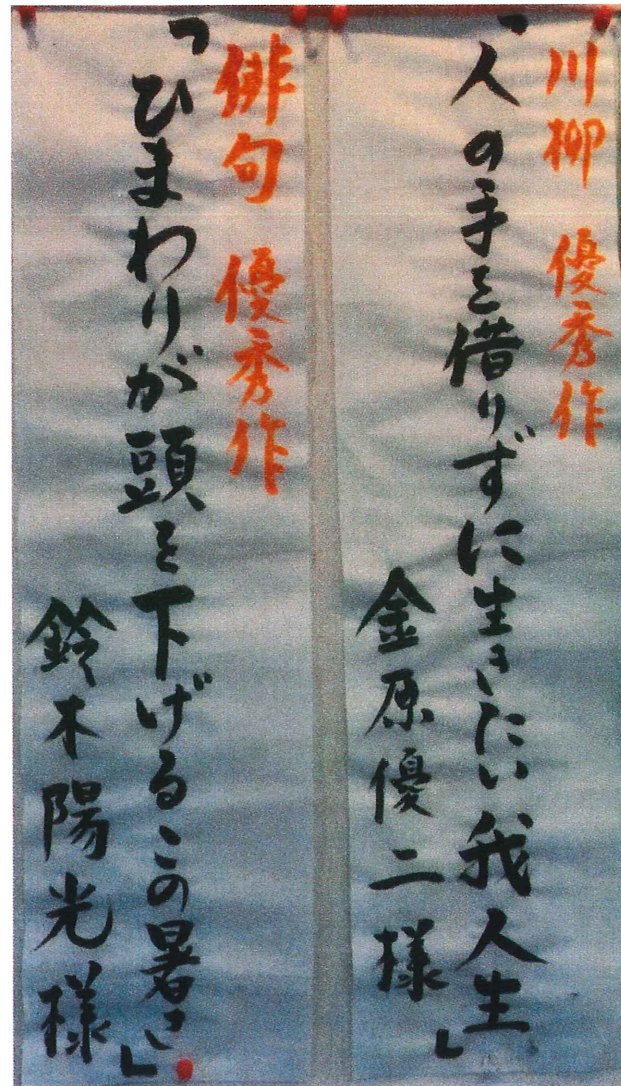 川柳 優秀作
「人の手を借りずに生きたい我人生」
金原優二様
俳句 優秀作
「ひまわりが頭を下げるこの暑さ」
鈴木陽光様